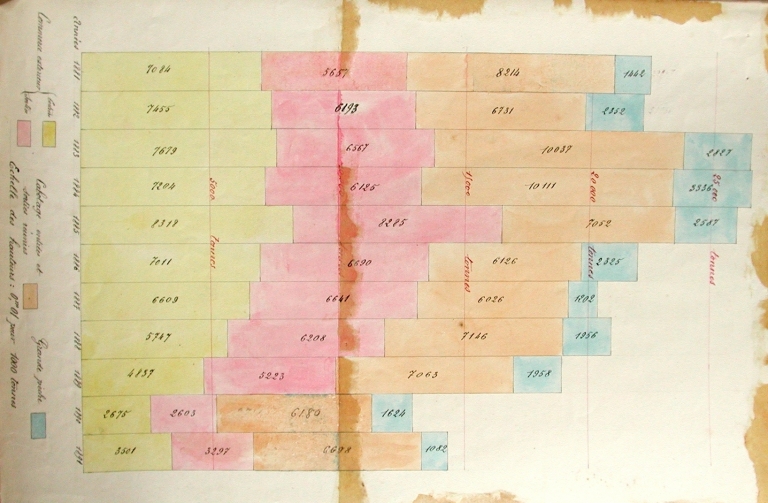 Commerce extérieur
Entrée
Sortie
Cabotage entrées et
sorties réunies
Grande pêche
Echelle des hauteurs : 0m01 pour 1000 tonnes
Années 1881 1882 1883 1884 1885 1886 1887 1888 1889 1890 1891
5000 tonnes
15000 tonnes
20000 tonnes
25000 tonnes
7084 5657 8214 1442
7455 6193 6731 2352
7679 6567 10037 2827
7204 6125 10111 3336
8318 8285 7052 2587
7011 6690 6126 2325
6609 6641 6026 1202
5747 6208 7146 1956
4837 5223 7063 1958
2675 2603 6180 1624
3501 3297 6698 1082